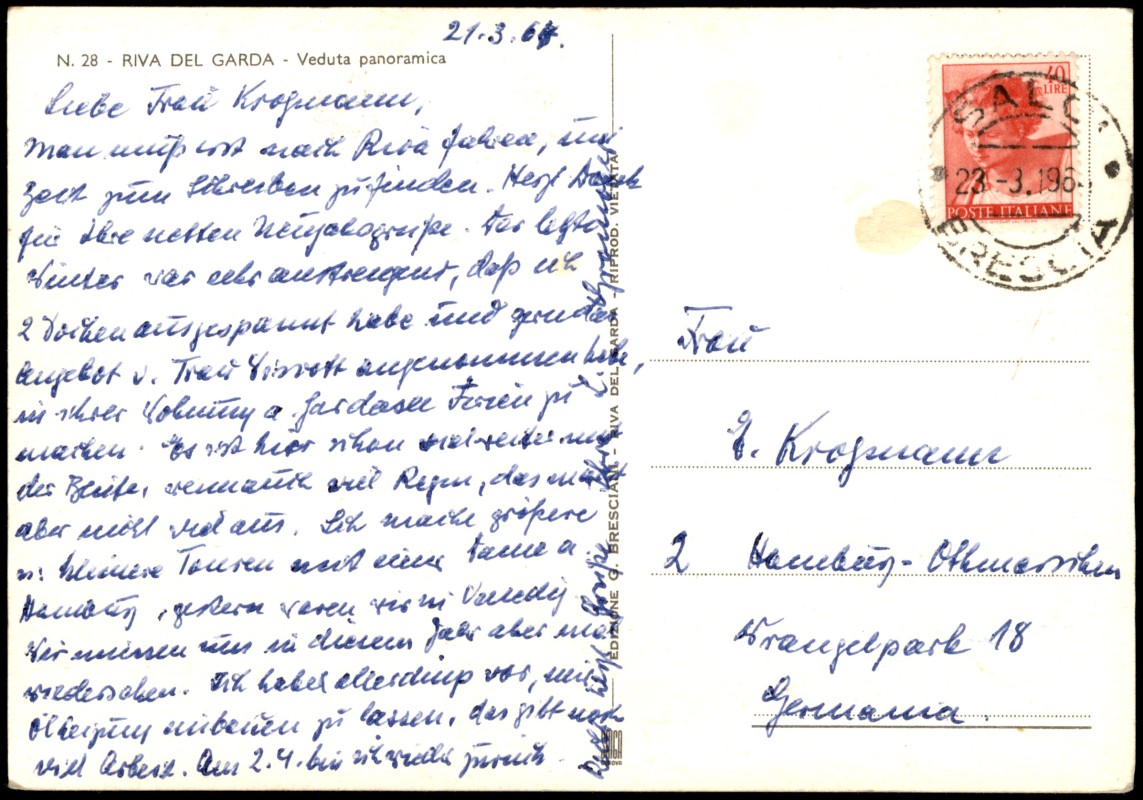 21.3.64.
N. 28 - RIVA DEL GARDA - Veduta panoramica
Liebe Frau Krogmann,
Man muß erst nach Riva fahren, um
Zeit zum Schreiben zu finden. Herzl Dank
für Ihre netten Neujahrsgrüße. Der letzte
Winter war sehr anstrengend, daß ich
2 Wochen ausgespannt habe und gern das
Angebot v. Frau angenommen habe,
in ihrer Wohnung a. Gardasee Ferien zu
machen. Es ist hier schon viel weiter mit
der Blüte, wenn auch viel Regen, das macht
aber nicht viel aus. Ich mache größere
u. kleinere Touren mit einer Dame a
Hamburg, gestern waren wir in Venedig.
Wir müssen uns in diesem Jahr aber mal
wiedersehen. Ich habe allerdings vor, mir
Ölheizung einbauen zu lassen, das gibt noch
viel Arbeit. Am 2.4. bin ich wieder zurück.
herzl Grüße Ihre
EDIZIONE G. BRESCIANI - RIVA DEL GARDA - RIPROD. VIETATA
40 LIRE
POSTE ITALIANE
SALO'
23 -3.196
BRESCIA
Frau
E. Krogmann
2 Hamburg-Othmarschen
Wrangelpark 18
Germania.